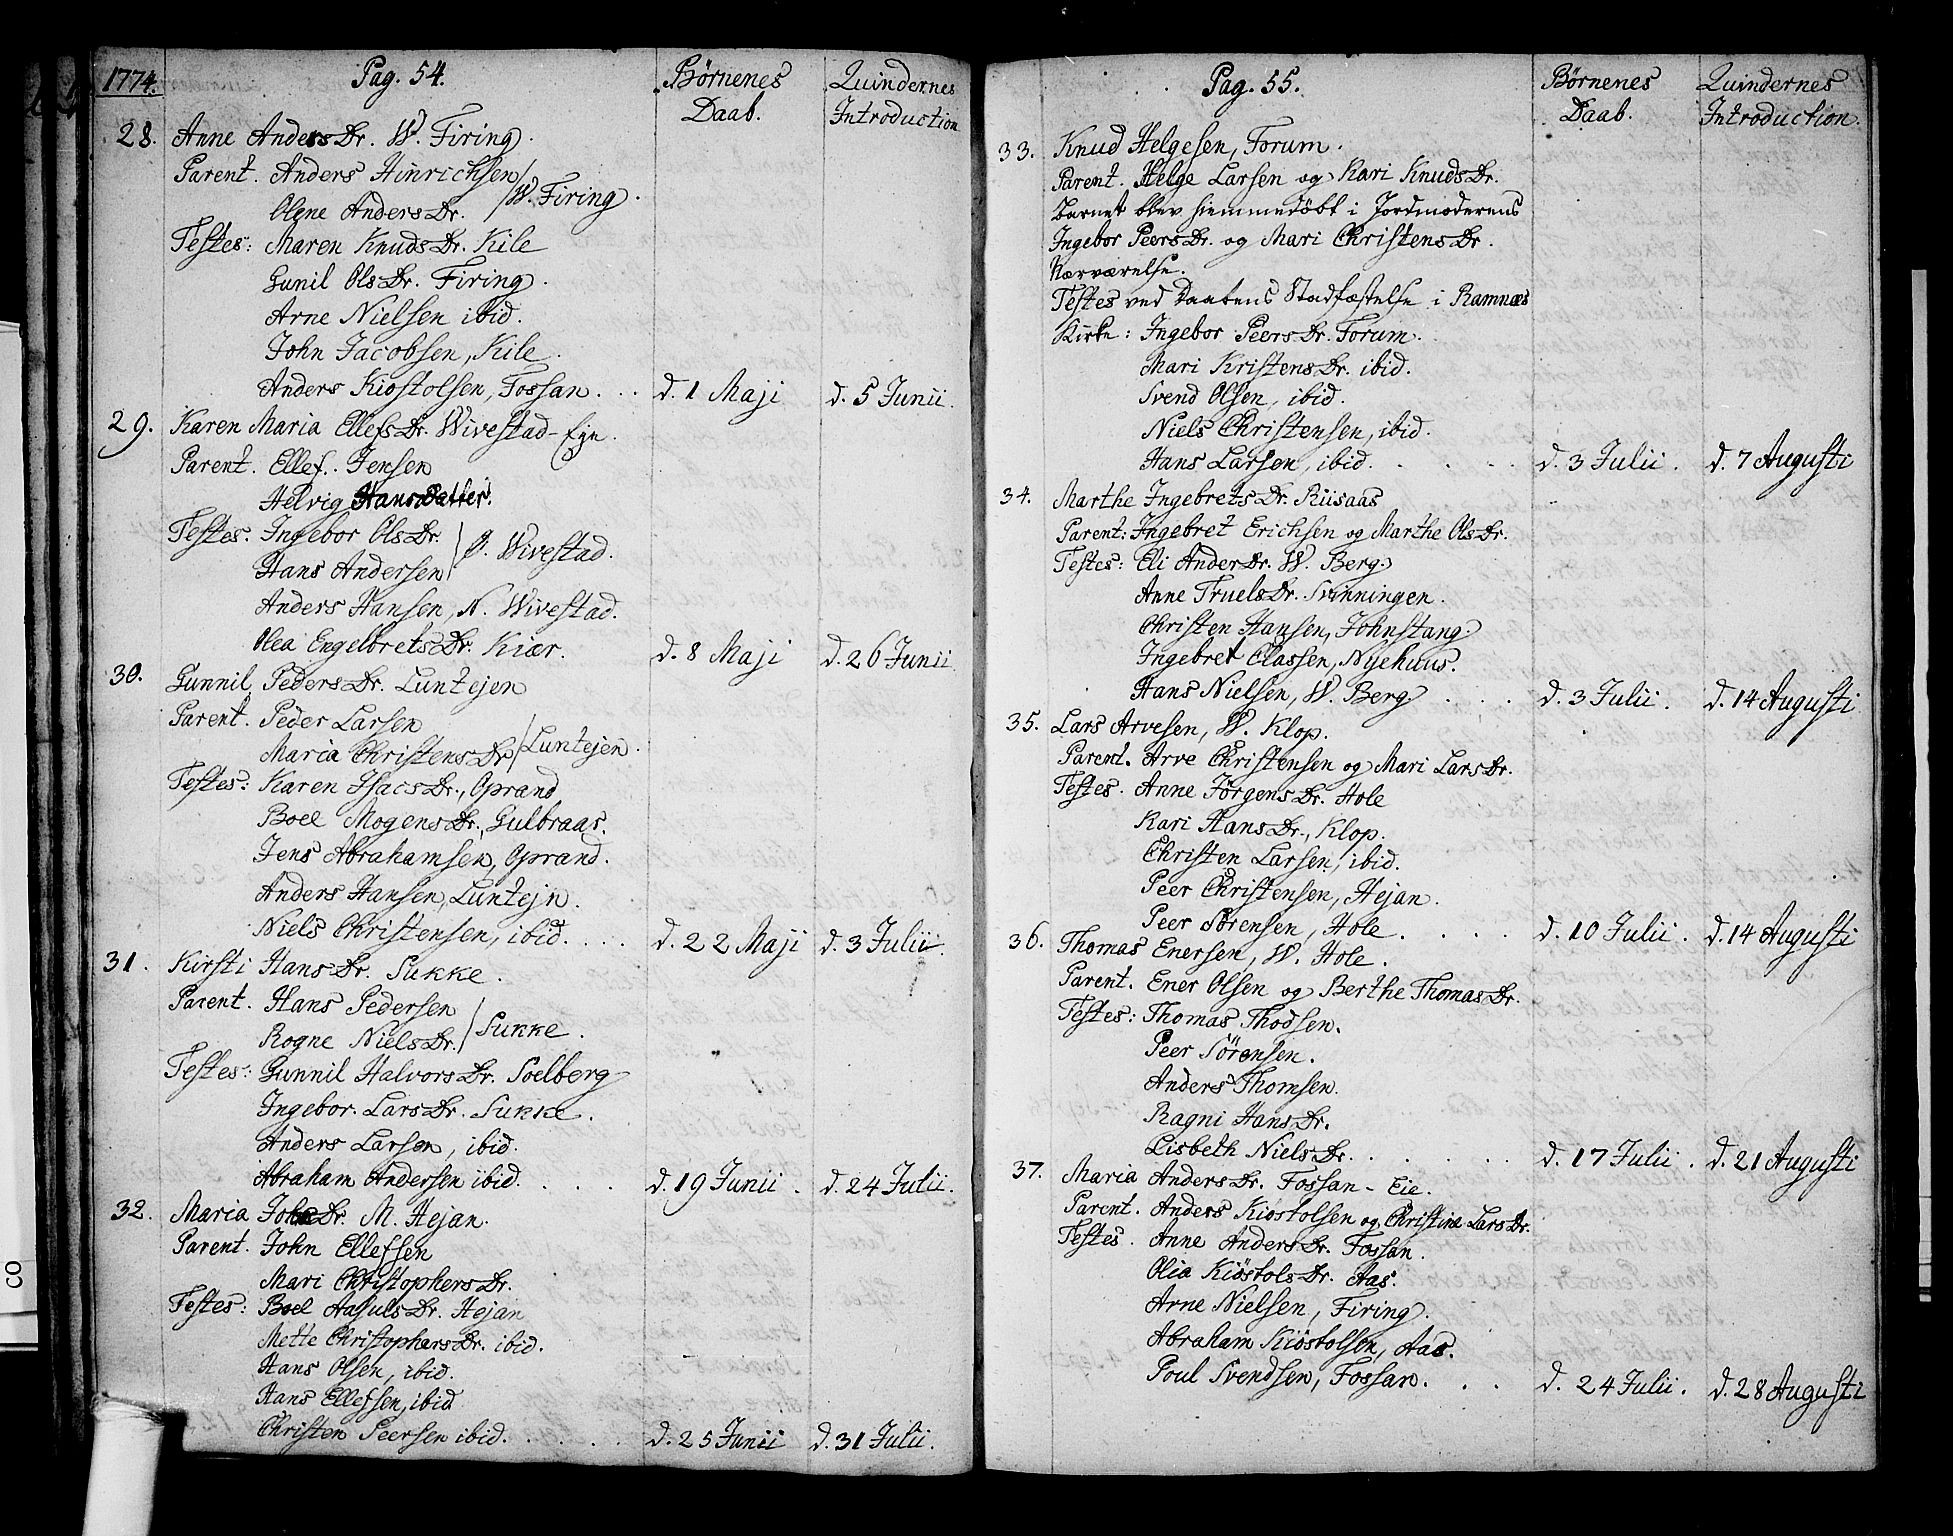 1774.
Pag. 54.
Børnenes Daab.
Quindernes Introduction
28. Anne AndersDr. W. Firing.
Parent. Anders Hinrichsen
Olene AndersDr. / W. Firing.
Testes: Maren KnudsDr. Kile
Gunil OlsDr. Firing.
Arne Nielsen ibid.
John Jacobsen, Kile.
Anders Kiostolsen, Fossan. . . d. 1 Maji d. 5 Junii.
29. Karen Maria EllefsDr. Wivestad-Eje.
Parent. Ellef. Jensen
Helvig Hansdatter.
Testes. Ingebor OlsDr.
Hans Andersen / Ø. Wivestad.
Anders Hansen, N. Wivestad.
Olea EngelbretsDr. Kiær. d. 8 Maji d. 26 Junii.
30. Gunnil PedersDr. Luntejen
Parent. Peder Larsen
Maria ChristensDr. / Luntejen.
Testes: Karen IsacsDr., Oprand
Boel MogensDr. Gulbraas.
Jens Abrahamsen, Oprand.
Anders Hansen, Luntejn.
Niels Christensen, ibid. . . . d. 22 Maji d. 3 Julii.
31. Kirsti HansDr. Sukke.
Parent. Hans Pedersen
Rogne NielsDr. / Sukke.
Testes: Gunnil HalvorsDr. Soelberg
Ingebor. LarsDr. Sukke.
Anders Larsen, ibid.
Abraham Andersen ibid. . . . d. 19 Junii. d. 24 Julii.
32. Maria JohnDr. M. Hejan.
Parent. John Ellefsen
Mari ChristophersDr.
Testes: Boel AasulsDr. Hejan
Mette ChristophersDr. ibid.
Hans Olsen, ibid.
Hans Ellefsen, ibid
Christen Peersen ibid. . . . . d. 25 Junii d. 31 Julii.
Pag. 55.
Børnenes Daab.
Quindernes Introduction.
33. Knud Helgesen, Forum.
Parent. Helge Larsen og Kari KnudsDr.
Barnet blev hiemmedøbt i Jordmoderens
Ingebor PeersDr. og Mari ChristensDr.
Nærværelse.
Testes ved Daabens Stadfæstelse i Ramnæs
Kirke: Ingebor PeersDr. Forum.
Mari KristensDr. ibid.
Svend Olsen, ibid.
Niels Christensen, ibid.
Hans Larsen, ibid. . . . . d. 3 Julii. d. 7 Augusti
34. Marthe IngebretsDr. Riisaas
Parent: Ingebret Erichsen og Marthe OlsDr.
Testes: Eli AnderDr. W. Berg.
Anne TruelsDr. Svinningen.
Christen Hansen, Johnstang.
Ingebret Classen, Nyehuus.
Hans Nielsen, W. Berg. . . . d. 3 Julii. d. 14 Augusti
35. Lars Arvesen, W. Klop.
Parent. Arve Christensen og Mari LarsDr.
Testes. Anne JörgensDr. Hole
Kari HansDr., Klop.
Christen Larsen, ibid.
Peer Christensen, Hejan.
Peer Sörensen, Hole. . . . d. 10 Julii. d. 14 Augusti
36. Thomas Enersen, W. Hole.
Parent. Ener Olsen og Berthe ThomasDr.
Testes: Thomas Thodsen.
Peer Sörensen.
Anders Thomsen.
Ragni HansDr.
Lisbeth NielsDr. . . . . . d. 17 Julii. d. 21 Augusti
37. Maria AndersDr. Fossan-Eie.
Parent. Anders Kiöstolsen og Christine LarsDr.
Testes. Anne AndersDr. Fossan.
Olia KiöstolsDr. Aas.
Arne Nielsen, Firing.
Abraham Kiöstolsen, Aas.
Poul Svendsen, Fossan. . . . d. 24 Julii. d. 28 Augusti